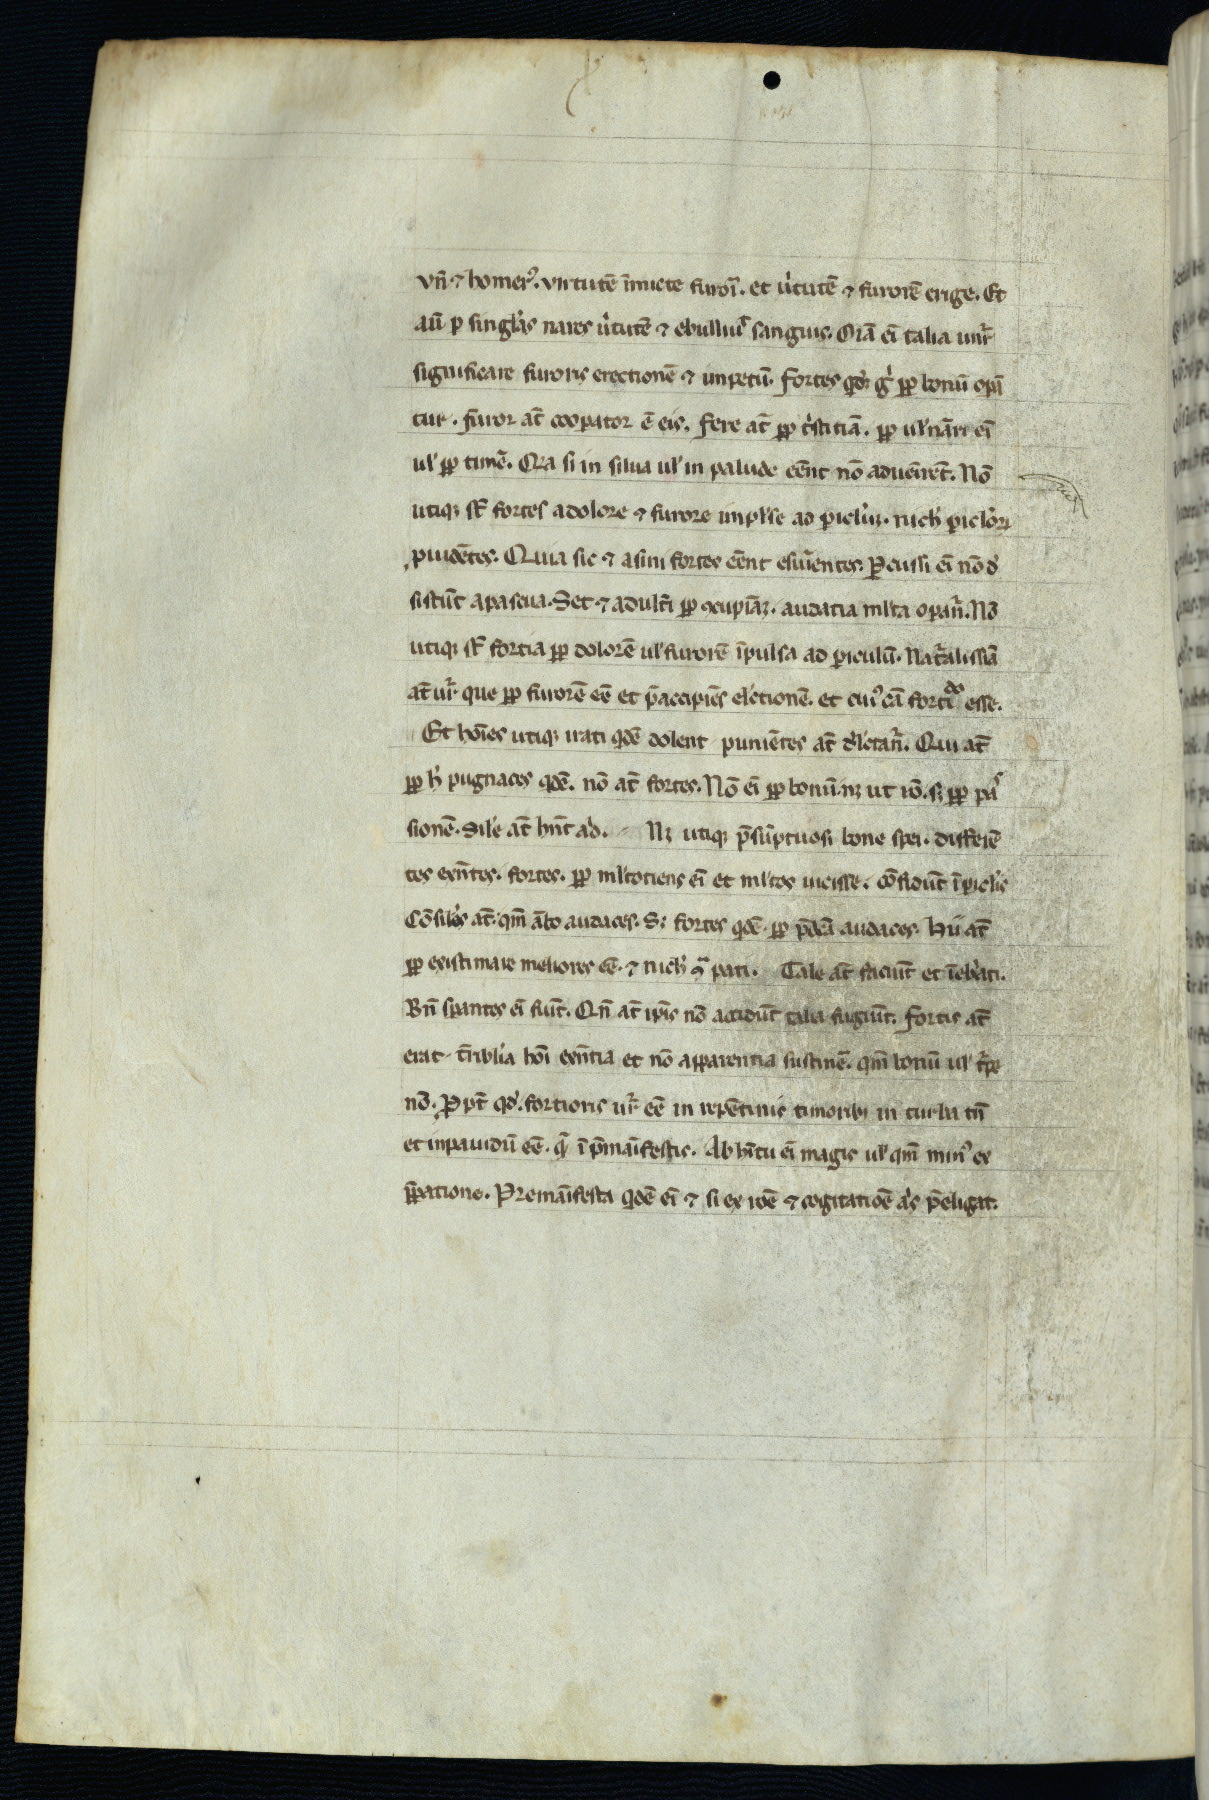 vn̄ ⁊ homer᷒. virtutē īmicte furorī. et u̾tutē ⁊ furorē erige. Et
aū p singlas nares u̾tutē ⁊ ebulliuit sanguis. Oīa eī talia unr̄
significare furoris erectionē ⁊ impetū. fortes qdē gͥ ꝓp bonū opā
tur. furor at̄ coopator ē eis. fere at̄ ꝓp tͥstitiā. ꝓp ul̾nāri eī
ul̾ ꝓp timē. Qia si in silua ul̾ in palude eēnt nō aduenirēt. Nō
utiqꝫ st̄ fortes a dolore ⁊ furore implse ad pic̾lm. nich̾ pic̾lor̄
p̱uidētes. Quia sic ⁊ asini fortes eēnt esurientes. Pcussi eī nō de
sistūt a pascua. Set ⁊ adultī ꝓp ꝯcupiāꝫ. audatia ml̾ta opan̄t. Nō
utiqꝫ st̄ fortia ꝓp dolorē ul̾ furorē īpulsa ad piculū. Nat̄alissīa
at̄ ur̄ que ꝓp furorē eē et p̄accipiēs elec̄tionē. et cui᷒ cā fortido esse.
Et hoīes utiqꝫ irati qdē dolent puniētes at̄ d̾lc̄tan̄t. Qui at̄
ꝓp h̾ pugnaces qdē. nō at̄ fortes. Nō eī ꝓp bonū. nꝫ ut rō. sꝫ ꝓp pas
sionē. Sil̾e at̄ hn̄t ad. Nꝫ utiqꝫ p̄sūptuosi bone spei. differē
tes exn̄tes. fortes. ꝓp ml̾totiens eī et ml̾tos uicisse. cōfidūt ī pic̾lis
Cōsiles at̄. qm̄ ābo audaces. Sꝫ fortes qdē. ꝓp p̄dc̄a audaces. Hii at̄
ꝓp existimare meliores eē. ⁊ nich̾ ꝯͣ pati. Tale at̄ faciūt et īebͥati.
Bn̄ spantes eī fiūt. Qn̄ at̄ ipīs nō accidūt talia fugiūt. fortis at̄
erat t̄ribilia hoī exn̄tia et nō apparentia sustinē. qm̄ bonū ul̾ t̄pe
nō. Ppt̄ qd̾. fortioris ur̄ eē in repētinis timoribꝫ in turba tn̄
et inpauidū eē. qͣ̄ ī p̄manīfestis. Ab hitu eī magis ul̾ qm̄ min᷒ ex
p̄patione. Premanīfesta qdē eī ⁊ si ex rōē ⁊ cogitatiōē als p̄eligat.